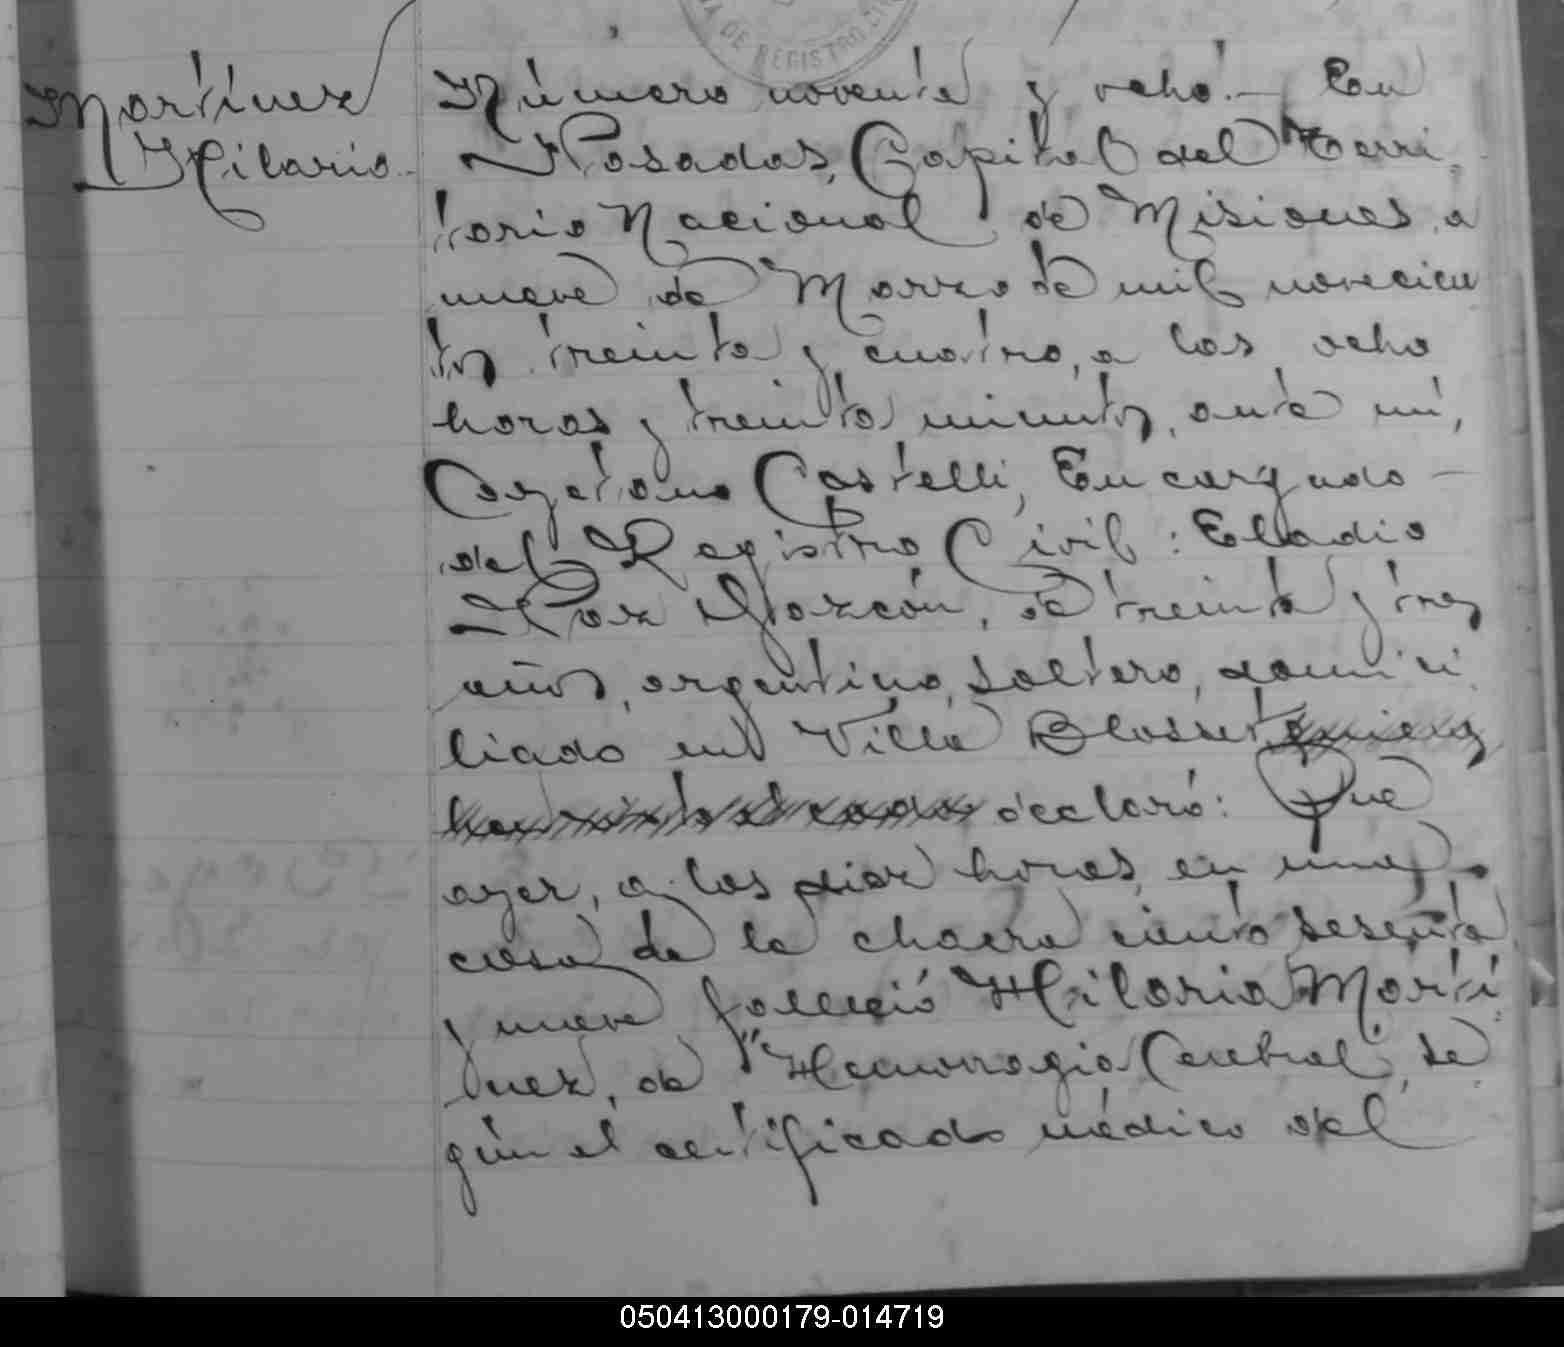 DE REGISTRO CIVIL
Martinez
Hilario.
Número noventa y ocho.- En
Posadas, Capital del Terri
torio Nacional de Misiones, a
nueve de Marzo de mil novecien
tos treinta y cuatro, a las ocho
horas y treinta minutos, ante mí,
Cayetano Castelli, Encargado -
del Registro Civil: Eladio
Paz Garzón, de treinta y tres
años, argentino, soltero, domici
liado en Villa Blosset
declaró: Que
ayer, a las diez horas, en una
casa de la chacra ciento sesenta
y nueve falleció Hilario Marti
nez, de "Hemorragia Cerebral", se
gún el certificado médico del
050413000179-014719